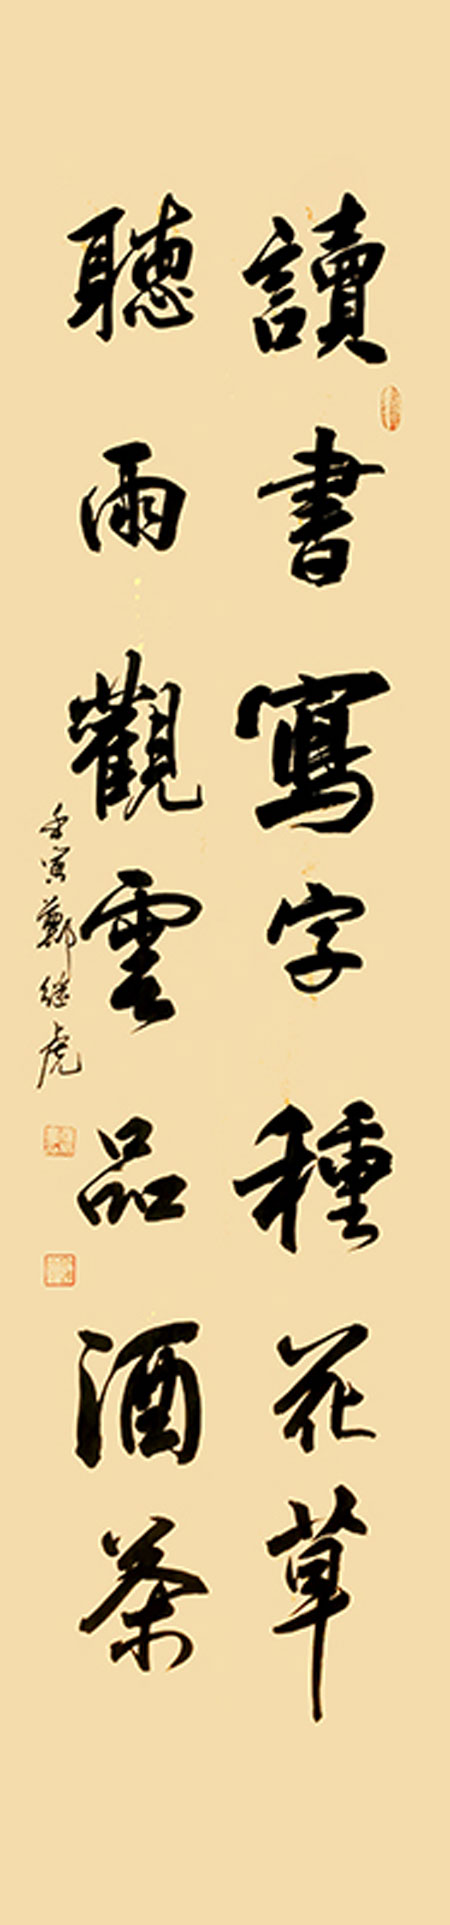 讀書寫字種花草
聽雨觀雲品酒茶
壬寅鄭继虎